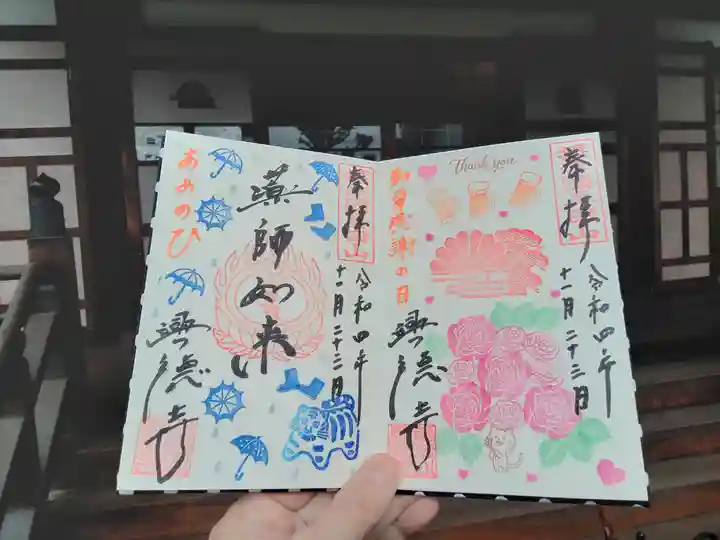 奉拝
令和四年
十一月二十三日
Thank you
勤労感謝の日
興徳寺
奉拝
令和四年
十一月二十三日
薬師如来
あめのひ
興徳寺